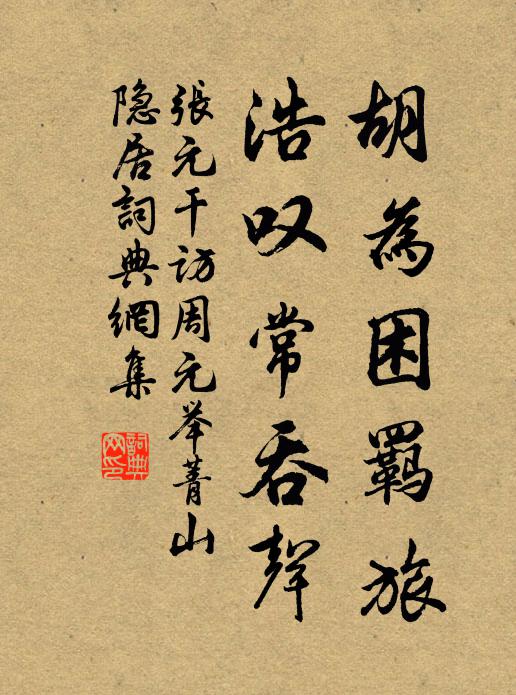 胡為困羈旅
浩叹常吞聲
張元干访周元举菁山
隐居詞典網集
詞典
网印